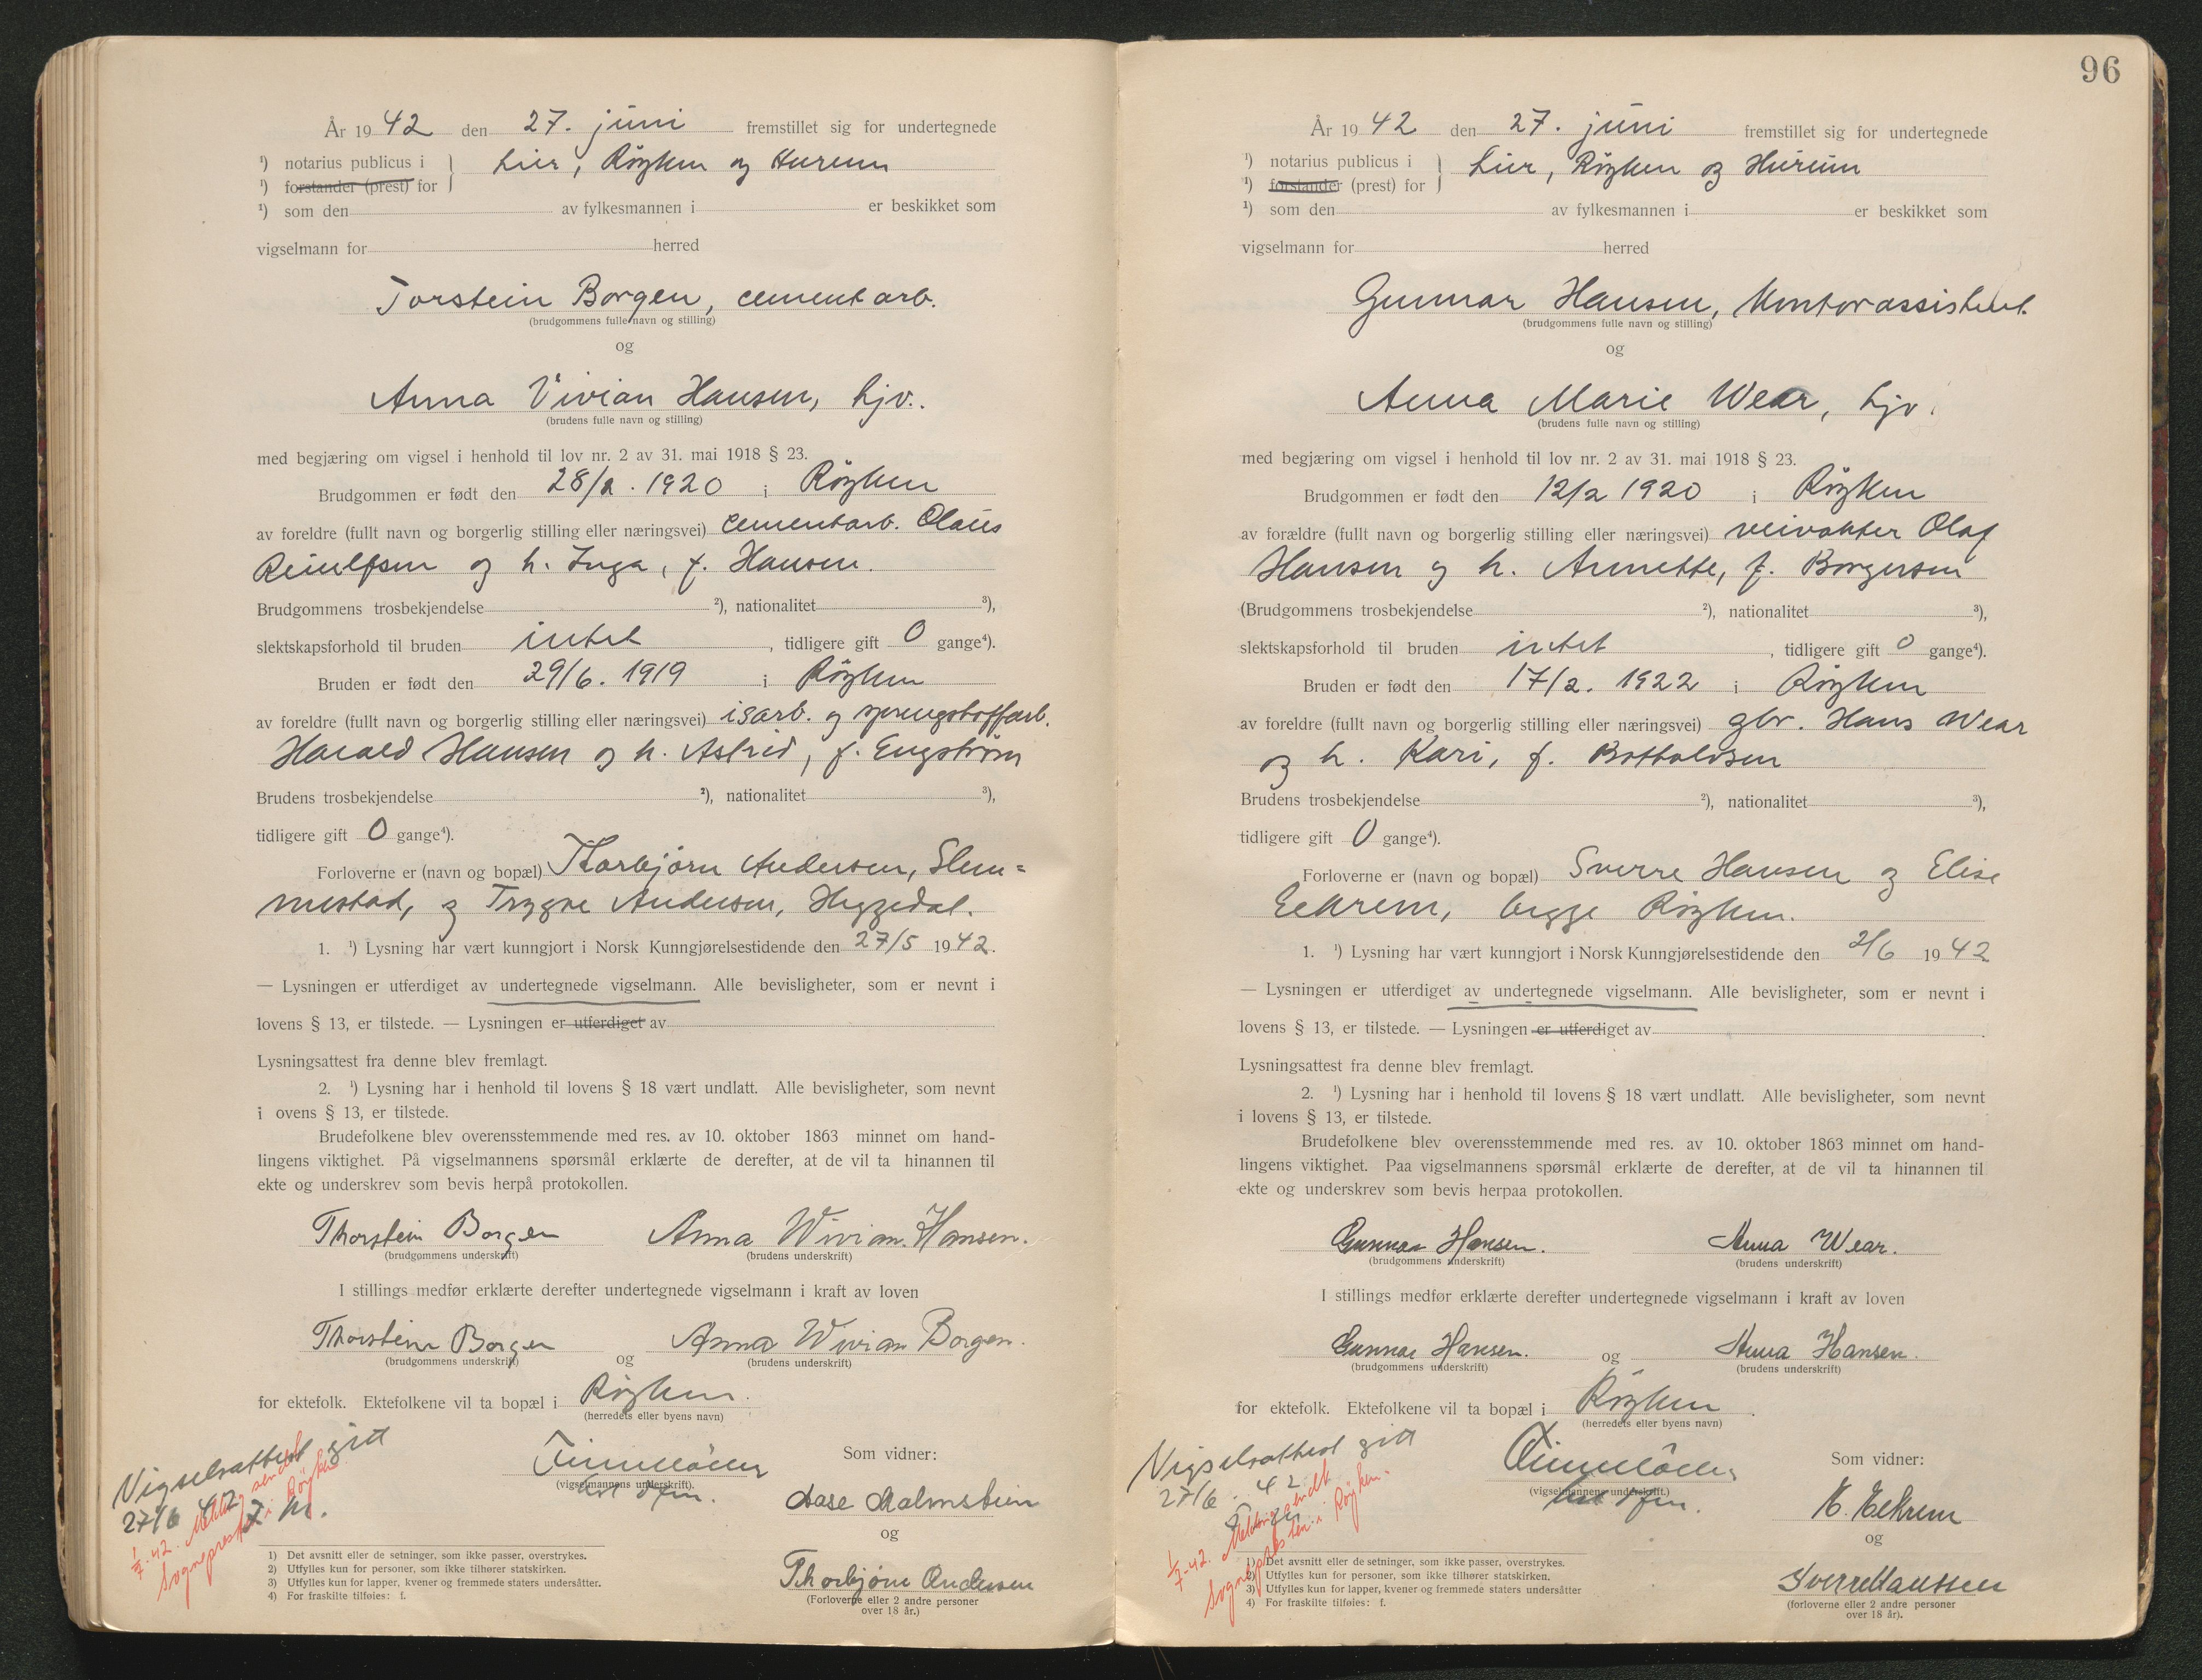 År 1942 den 27. juni fremstillet sig for undertegnede
¹) notarius publicus i Lier, Røyken og Hurum
¹) forstander (prest) for
¹) som den av fylkesmannen i er beskikket som
vigselmann for herred
Torstein Borgen, cementarb.
(brudgommens fulle navn og stilling)
og
Anna Vivian Hansen, hjv.
(brudens fulle navn og stilling)
med begjæring om vigsel i henhold til lov nr. 2 av 31. mai 1918 § 23.
Brudgommen er født den 28/2. 1920 i Røyken
av foreldre (fullt navn og borgerlig stilling eller næringsvei) cementarb. Olaus
Reiulfsen og h. Inga, f. Hansen.
Brudgommens trosbekjendelse ²), nationalitet ³),
slektskapsforhold til bruden intet, tidligere gift 0 gange⁴).
Bruden er født den 29/6. 1919 i Røyken
av foreldre (fullt navn og borgerlig stilling eller næringsvei) isarb. og sprengstoffarb.
Harald Hansen og h. Astrid, f. Engstrøm
Brudens trosbekjendelse ²), nationalitet ³),
tidligere gift 0 gange⁴).
Forloverne er (navn og bopæl) Thorbjørn Andersen, Slem=
mestad, og Trygve Andersen, Heggedal.
1. ¹) Lysning har vært kunngjort i Norsk Kunngjørelsestidende den 27/5 1942.
— Lysningen er utferdiget av undertegnede vigselmann. Alle bevisligheter, som er nevnt i
lovens § 13, er tilstede. — Lysningen er utferdiget av
Lysningsattest fra denne blev fremlagt.
2. ¹) Lysning har i henhold til lovens § 18 vært undlatt. Alle bevisligheter, som nevnt
i ovens § 13, er tilstede.
Brudefolkene blev overensstemmende med res. av 10. oktober 1863 minnet om hand-
lingens viktighet. På vigselmannens spørsmål erklærte de derefter, at de vil ta hinannen til
ekte og underskrev som bevis herpå protokollen.
Thorstein Borgen Anna Wivian Hansen.
(brudgommens underskrift) (brudens underskrift)
I stillings medfør erklærte derefter undertegnede vigselmann i kraft av loven
Thorstein Borgen og Anna Wivian Borgen.
(brudgommens underskrift) (brudens underskrift)
for ektefolk. Ektefolkene vil ta bopæl i Røyken.
(herredets eller byens navn)
Vigselsattest gitt
27/6 42
1/7-42. Melding sendt
Sogneprest i Røyken
(vigselmannens underskrift).
Som vidner:
Aase Malmstein
og
Thorbjørn Andersen
(Forloverne eller 2 andre personer
over 18 år.)
1) Det avsnitt eller de setninger, som ikke passer, overstrykes.
2) Utfylles kun for personer, som ikke tilhører statskirken.
3) Utfylles kun for lapper, kvener og fremmede staters undersåtter.
4) For fraskilte tilføies: f.
96
År 1942 den 27. juni fremstillet sig for undertegnede
¹) notarius publicus i Lier, Røyken og Hurum
¹) forstander (prest) for
¹) som den av fylkesmannen i er beskikket som
vigselmann for herred
Gunnar Hansen, kontorassistent.
(brudgommens fulle navn og stilling)
og
Anna Marie Wear, hjv.
(brudens fulle navn og stilling)
med begjæring om vigsel i henhold til lov nr. 2 av 31. mai 1918 § 23.
Brudgommen er født den 12/2 1920 i Røyken
av forældre (fullt navn og borgerlig stilling eller næringsvei) veivokter Olaf
Hansen og h. Annette, f. Borgersen
(Brudgommens trosbekjendelse ²), nationalitet ³),
slektskapsforhold til bruden intet, tidligere gift 0 gange⁴).
Bruden er født den 17/2. 1922 i Røyken
av foreldre (fullt navn og borgerlig stilling eller næringsvei) gbr. Hans Wear
og h. Kari, f. Bottolvsen
Brudens trosbekjendelse ²), nationalitet ³),
tidligere gift 0 gange⁴).
Forloverne er (navn og bopæl) Sverre Hansen og Elise
Eekrem, begge Røyken.
1. ¹) Lysning har vært kunngjort i Norsk Kunngjørelsestidende den 2/6 1942
— Lysningen er utferdiget av undertegnede vigselmann. Alle bevisligheter, som er nevnt i
lovens § 13, er tilstede. — Lysningen er utferdiget av
Lysningsattest fra denne blev fremlagt.
2. ¹) Lysning har i henhold til lovens § 18 vært undlatt. Alle bevisligheter, som nevnt
i lovens § 13, er tilstede.
Brudefolkene blev overensstemmende med res. av 10. oktober 1863 minnet om hand-
lingens viktighet. Paa vigselmannens spørsmål erklærte de derefter, at de vil ta hinannen til
ekte og underskrev som bevis herpaa protokollen.
Gunnar Hansen. Anna Wear.
(brudgommens underskrift) (brudens underskrift)
I stillings medfør erklærte derefter undertegnede vigselmann i kraft av loven
Gunnar Hansen. og Anna Hansen.
(brudgommens underskrift) (brudens underskrift)
for ektefolk. Ektefolkene vil ta bopæl i Røyken.
(herredets eller byens navn)
Vigselsattest gitt
27/6. 42
1/7-42. Melding sendt
Sognepresten i Røyken.
(vigselmannens underskrift.)
Som vidner:
E. Eekrem
og
Sverre Hanssen
(forloverne eller 2 andre personer
over 18 år).
1) Det avsnitt eller de setninger, som ikke passer, overstrykes.
2) Utfylles kun for personer, som ikke tilhører statskirken.
3) Utfylles kun for lapper, kvener og fremmede staters undersåtter
4) For fraskilte tilføies: f.